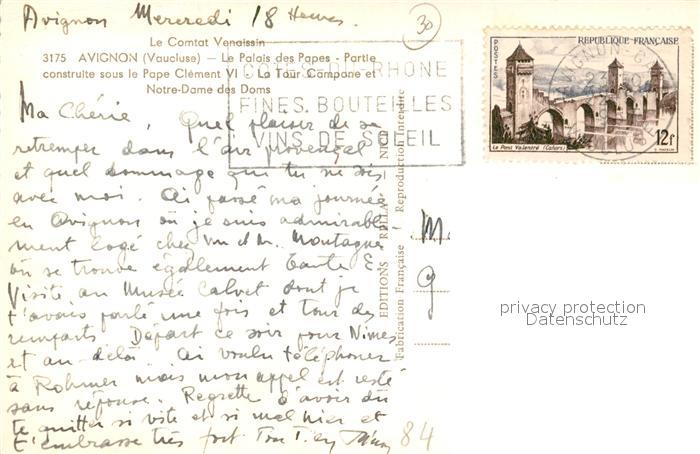 Avignon Mercredi 18 Heures.
30
Le Comtat Venaissin
3175 AVIGNON (Vaucluse) — Le Palais des Papes - Partie
construite sous le Pape Clément VI - La Tour Campane et
Notre-Dame des Doms
COTES DU RHONE
FINES BOUTEILLES
VINS DE SOLEIL
POSTES
RÉPUBLIQUE FRANÇAISE
12f
Le Pont Valentré (Cahors)
Ma Chérie, Quel plaisir de se
retremper dans l'air provençal
et quel dommage que tu ne sois
avec moi. Ai passé ma journée
en Avignon où je suis admirable-
ment logé chez Mr et M. Montagne
où se trouve également tante E
Visité au Musée Calvet dont je
t'avais parlé une fois et tour des
remparts. Départ ce soir pour Nimes
et au-delà. Ai voulu téléphoner
à Rohmer mais mon appel est resté
sans réponse. Regrette d'avoir dû
te quitter si vite et si mal hier et
t'embrasse très fort Ton
84
EDITIONS RELLA - NICE
Fabrication Française - Reproduction Interdite
M
privacy protection
Datenschutz